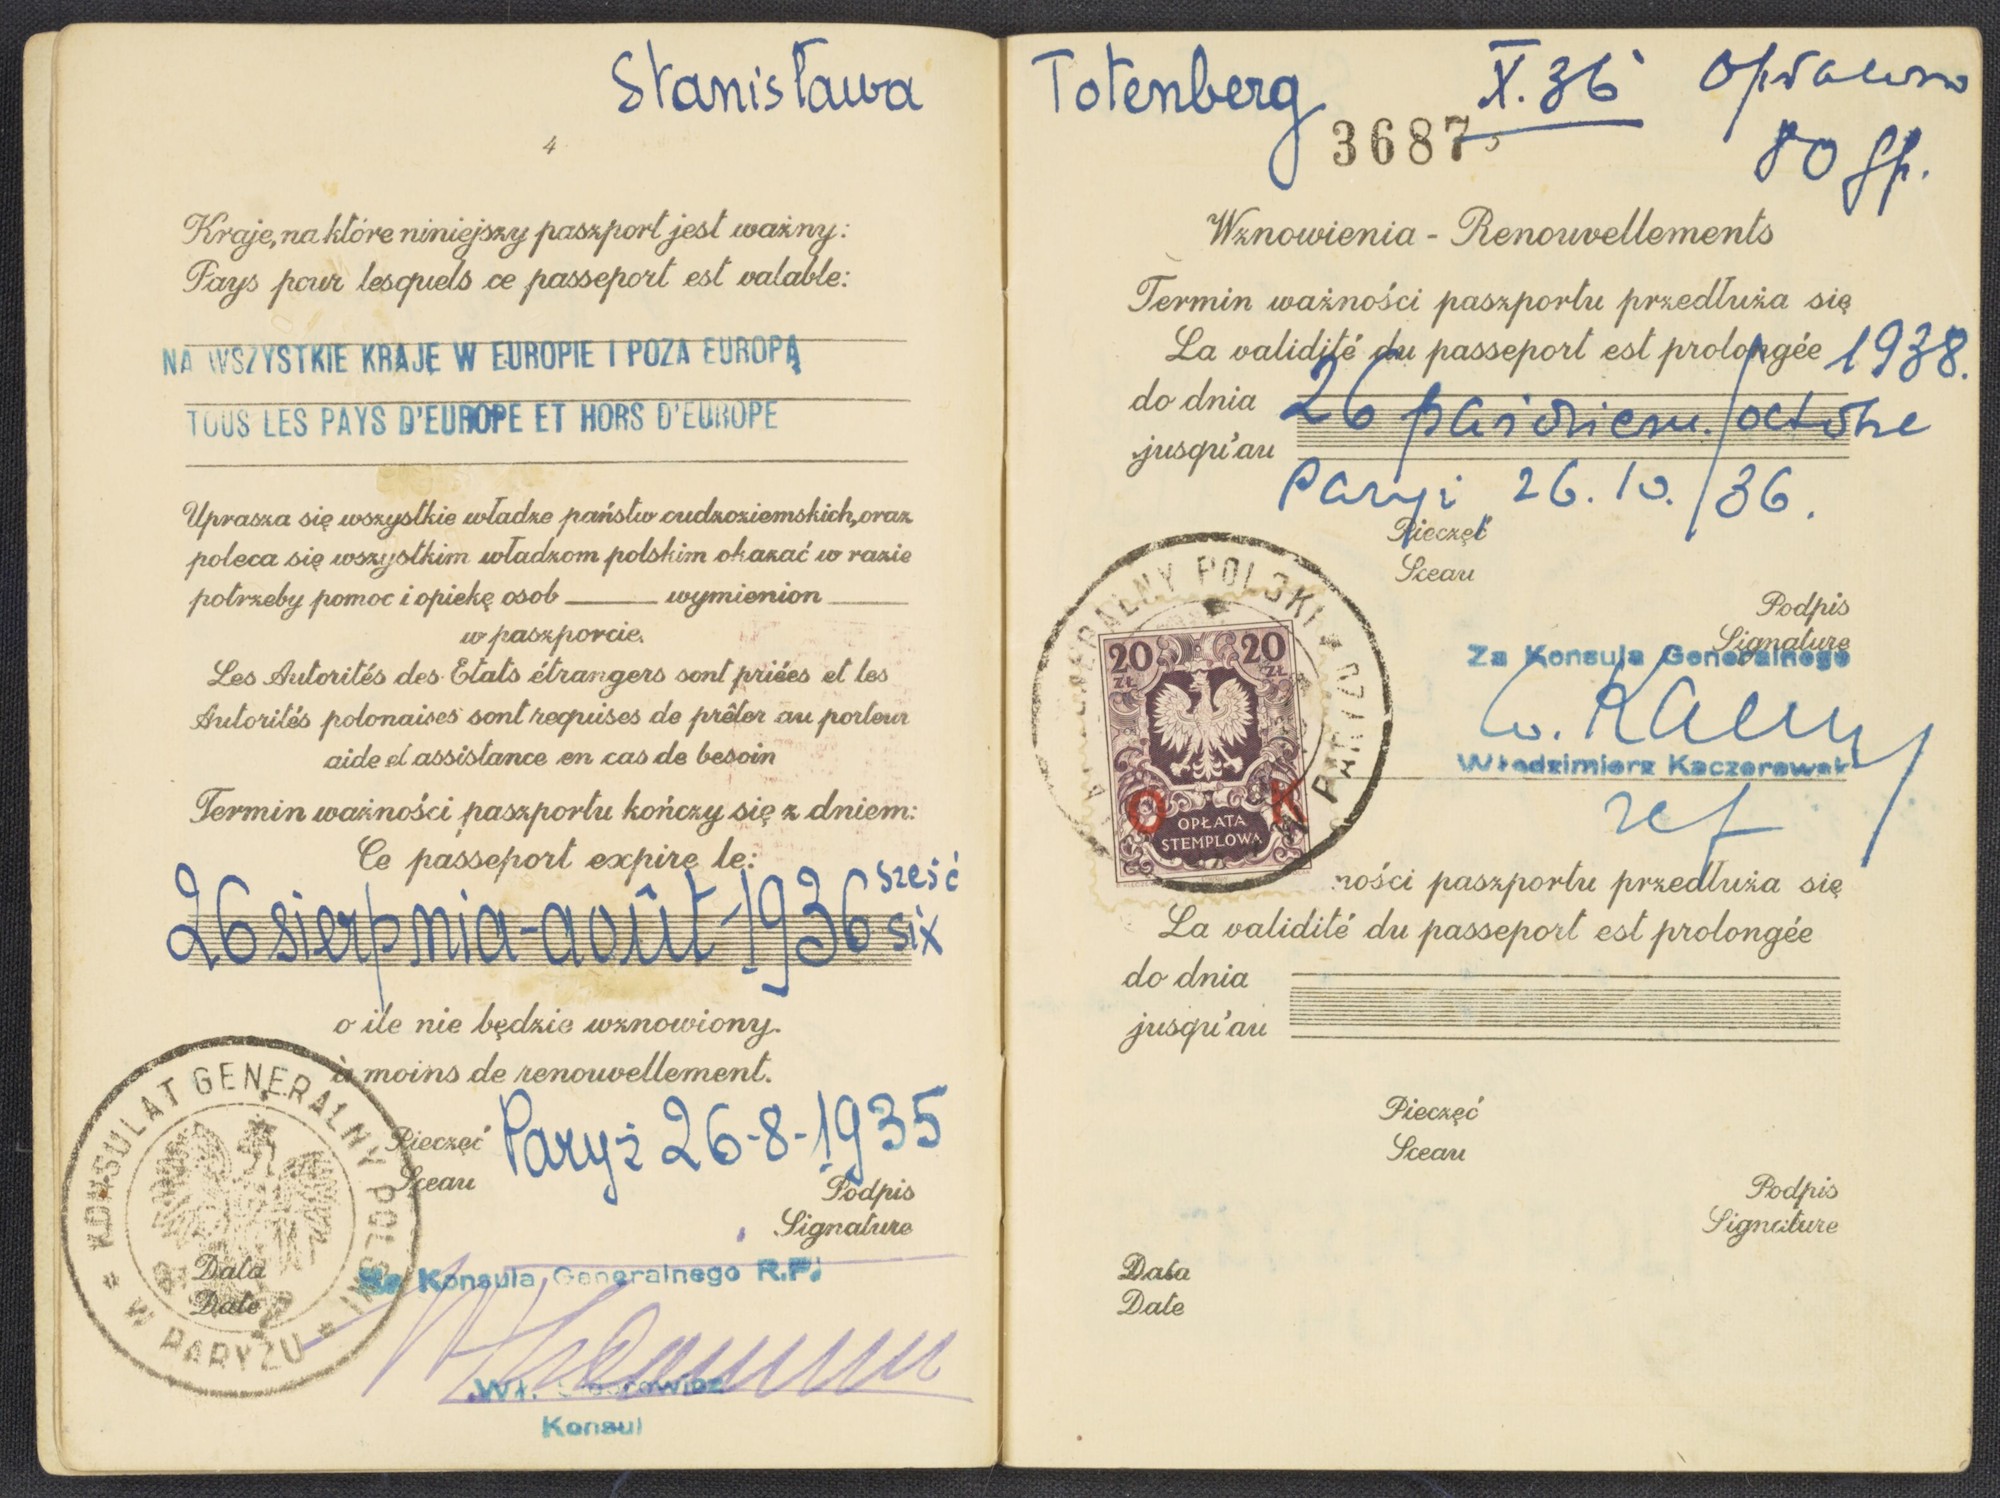 Stanisława
4
Kraje, na które niniejszy paszport jest ważny:
Pays pour lesquels ce passeport est valable:
NA WSZYSTKIE KRAJE W EUROPIE I POZA EUROPĄ
TOUS LES PAYS D'EUROPE ET HORS D'EUROPE
Uprasza się wszystkie władze państw cudzoziemskich, oraz
poleca się wszystkim władzom polskim okazać w razie
potrzeby pomoc i opiekę osob ____ wymienion ____
w paszporcie.
Les Autorités des Etats étrangers sont priées et les
Autorités polonaises sont requises de prêter au porteur
aide et assistance en cas de besoin
Termin ważności paszportu kończy się z dniem:
Ce passeport expire le:
26 sierpnia-août-1936 sześć
six
o ile nie będzie wznowiony.
à moins de renouvellement.
Pieczęć
Sceau
Paryż 26-8-1935
Podpis
Signature
KONSULAT GENERALNY POLSKI W PARYŻU
Data
Date
Za Konsula Generalnego R.P.
Konsul
Totenberg X.36
3687
80 gr.
Wznowienia - Renouvellements
Termin ważności paszportu przedłuża się
La validité du passeport est prolongée 1938.
do dnia
jusqu'au
26 październ./octobre
Paryż 26.10./36.
Pieczęć
Sceau
Podpis
Signature
Za Konsula Generalnego
Włodzimierz
ref
GENERALNY POLSKI W PARYŻU
20 ZŁ 20 ZŁ
O K
OPŁATA
STEMPLOWA
ności paszportu przedłuża się
La validité du passeport est prolongée
do dnia
jusqu'au
Pieczęć
Sceau
Podpis
Signature
Data
Date